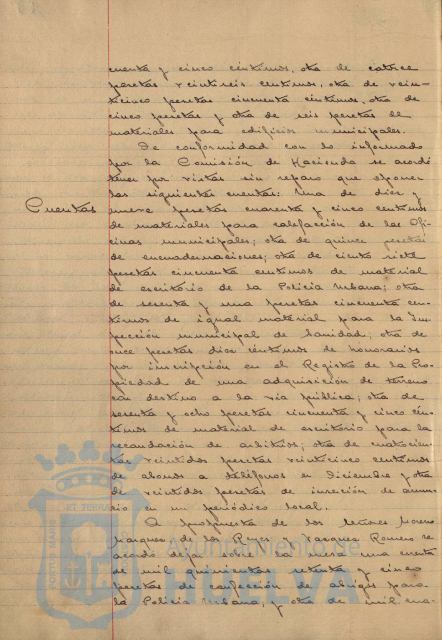 cuenta y cinco céntimos, otra de catorce
pesetas veintiseis centimos, otra de vein-
ticinco pesetas cincuenta céntimos, otra de
cinco pesetas y otra de seis pesetas de
materiales para edificios municipales.
De conformidad con lo informado
por la Comisión de Hacienda se acordó
tener por vistas sin reparo que oponer
las siguientes cuentas: Una de diez y
Cuentas
nueve pesetas cuarenta y cinco centimos
de materiales para calefacción de las Ofi-
cinas municipales; otra de quince pesetas
de encuadernaciones; otra de ciento siete
pesetas cincuenta centimos de material
de escritorio de la Policia Urbana; otra
de sesenta y una pesetas cincuenta cen-
timos de igual material para la Ins-
pección municipal de Sanidad; otra de
once pesetas doce céntimos de honorarios
por inscripción en el Registro de la Pro-
piedad de una adquisición de terreno
con destino a la via pública; otra de
sesenta y ocho pesetas cincuenta y cinco cén-
timos de material de escritorio para la
recaudación de arbitrios; otra de cuatrocien-
tas veintidos pesetas veinticinco centimos
de abonos a teléfonos en Diciembre y otra
de veintidos pesetas de inserción de anun-
cio en un periódico local.
A propuesta de los señores Moreno
Marquez de los Reyes y Vazquez Romero se
acordó dejar sobre la mesa una cuenta
de mil quinientas setenta y cinco
pesetas de confección de abrigos para
la Policia Urbana, y otra de mil cua-
Ayuntamiento de
HUELVA
PORTUS MARIS ET TERRAE